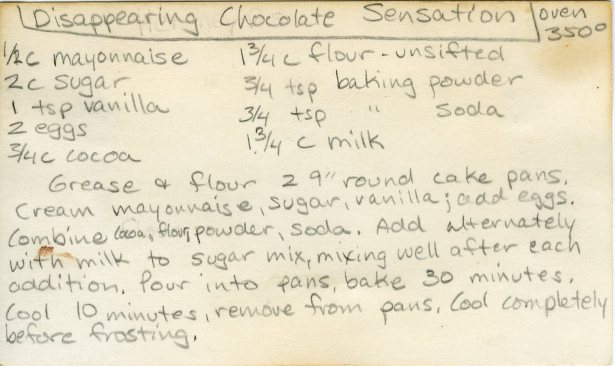 Disappearing Chocolate Sensation
oven 350°
1/2 c mayonnaise
2 c sugar
1 tsp vanilla
2 eggs
3/4 c cocoa
1 3/4 c flour - unsifted
3/4 tsp baking powder
3/4 tsp " soda
1 3/4 c milk
Grease & flour 2 9" round cake pans.
Cream mayonnaise, sugar, vanilla; add eggs.
Combine cocoa, flour, powder, soda. Add alternately
with milk to sugar mix, mixing well after each
addition. Pour into pans, bake 30 minutes.
Cool 10 minutes, remove from pans. Cool completely
before frosting.